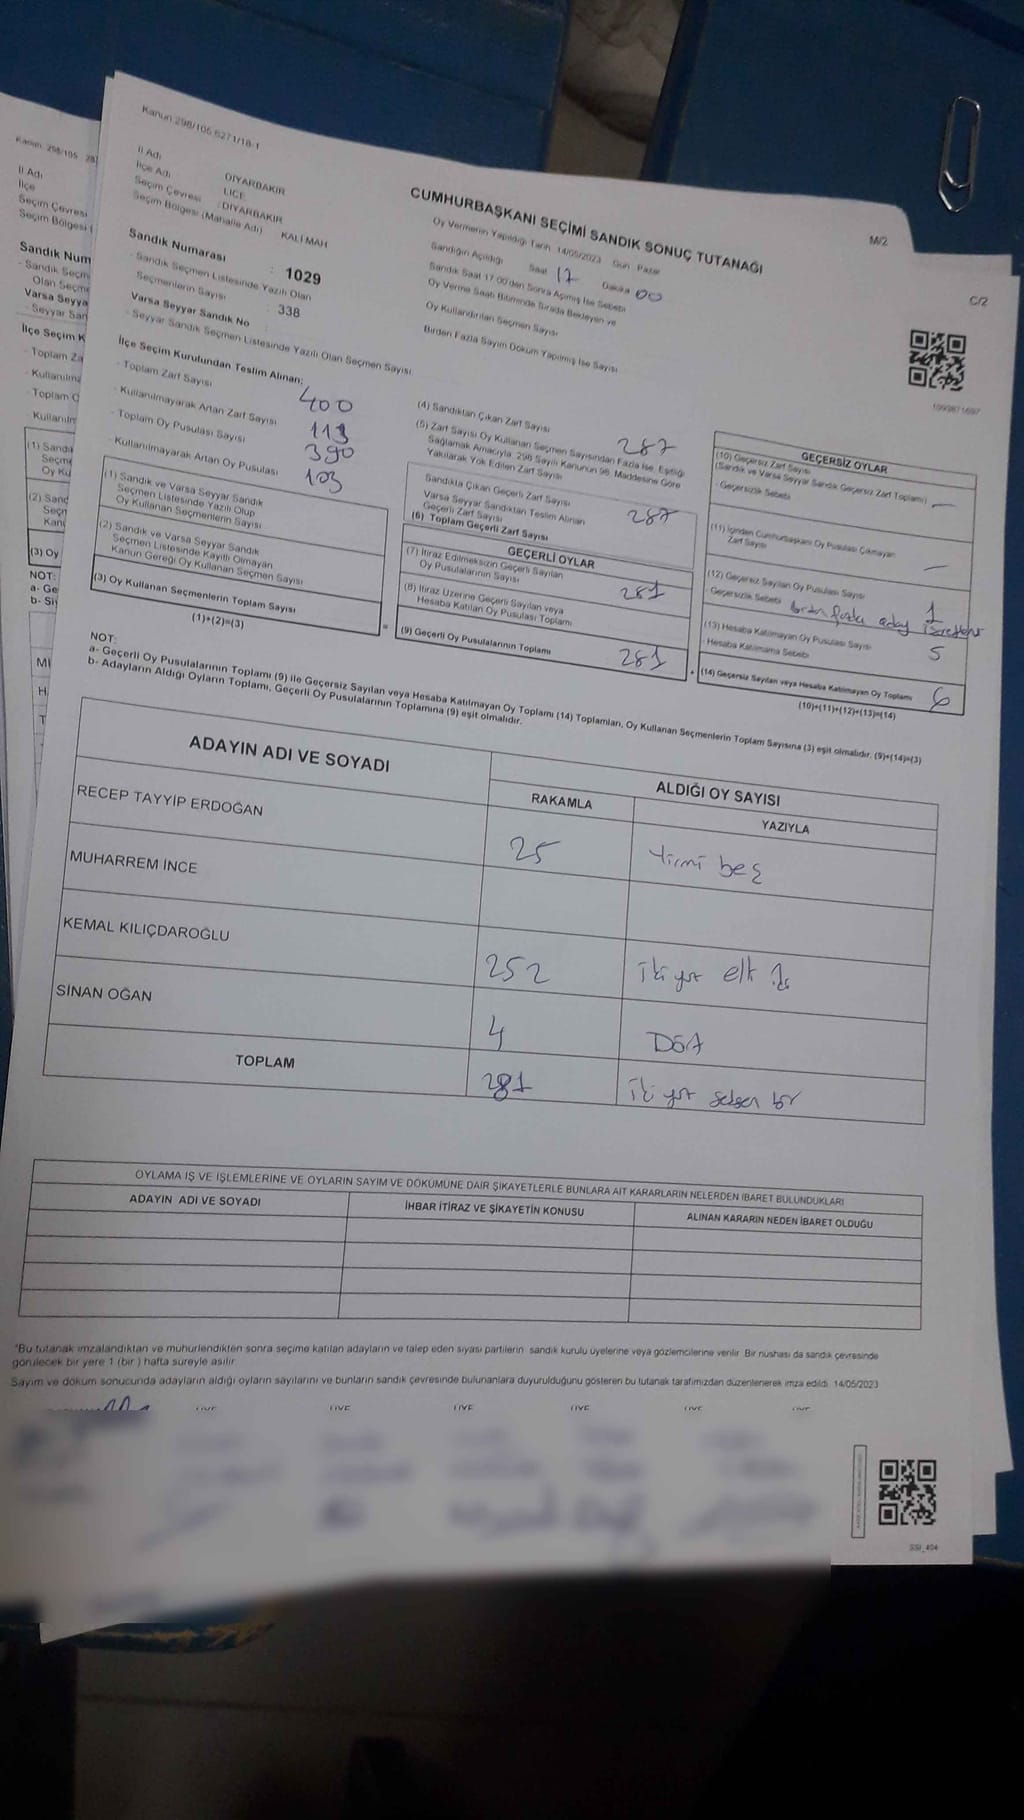 Kanun 298/105
Kanun 298/105 6271/18-1
İl Adı
İlçe
Seçim Çevresi
Seçim Bölgesi (
Sandık Num
- Sandık Seçm
Olan Seçme
Varsa Seyya
- Seyyar San
İlçe Seçim K
- Toplam Za
- Kullanılma
- Toplam O
- Kullanılm
(1) Sandı
Seçme
Oy Ku
(2) Sand
Seçm
Kanu
(3) Oy
NOT:
a- Ge
b- Si
İl Adı DİYARBAKIR
İlçe Adı LİCE
Seçim Çevresi : DİYARBAKIR
Seçim Bölgesi (Mahalle Adı) KALI MAH
Sandık Numarası : 1029
- Sandık Seçmen Listesinde Yazılı Olan
Seçmenlerin Sayısı : 338
Varsa Seyyar Sandık No :
- Seyyar Sandık Seçmen Listesinde Yazılı Olan Seçmen Sayısı
CUMHURBAŞKANI SEÇİMİ SANDIK SONUÇ TUTANAĞI
M/2
C/2
Oy Vermenin Yapıldığı Tarih 14/05/2023 Gün Pazar
Sandığın Açıldığı Saat 17 Dakika 00
Sandık Saat 17.00'den Sonra Açılmış İse Sebebi
Oy Verme Saati Bitiminde Sırada Bekleyen ve
Oy Kullandırılan Seçmen Sayısı
Birden Fazla Sayım Döküm Yapılmış İse Sayısı
İlçe Seçim Kurulundan Teslim Alınan;
- Toplam Zarf Sayısı 400
- Kullanılmayarak Artan Zarf Sayısı 113
- Toplam Oy Pusulası Sayısı 390
- Kullanılmayarak Artan Oy Pusulası 103
(1) Sandık ve Varsa Seyyar Sandık
Seçmen Listesinde Yazılı Olup
Oy Kullanan Seçmenlerin Sayısı
(2) Sandık ve Varsa Seyyar Sandık
Seçmen Listesinde Kayıtlı Olmayan
Kanun Gereği Oy Kullanan Seçmen Sayısı
(3) Oy Kullanan Seçmenlerin Toplam Sayısı
(1)+(2)=(3)
=
(4) Sandıktan Çıkan Zarf Sayısı 287
(5) Zarf Sayısı Oy Kullanan Seçmen Sayısından Fazla İse, Eşitliği
Sağlamak Amacıyla, 298 Sayılı Kanunun 98. Maddesine Göre
Yakılarak Yok Edilen Zarf Sayısı
Sandıkta Çıkan Geçerli Zarf Sayısı
Varsa Seyyar Sandıktan Teslim Alınan
Geçerli Zarf Sayısı 287
(6) Toplam Geçerli Zarf Sayısı
GEÇERLİ OYLAR
(7) İtiraz Edilmeksizin Geçerli Sayılan
Oy Pusulalarının Sayısı 281
(8) İtiraz Üzerine Geçerli Sayılan veya
Hesaba Katılan Oy Pusulası Toplamı
(9) Geçerli Oy Pusulalarının Toplamı 281
+
GEÇERSİZ OYLAR
(10) Geçersiz Zarf Sayısı
(Sandık ve Varsa Seyyar Sandık Geçersiz Zarf Toplamı) —
- Geçersizlik Sebebi
(11) İçinden Cumhurbaşkanı Oy Pusulası Çıkmayan
Zarf Sayısı —
(12) Geçersiz Sayılan Oy Pusulası Sayısı 1
- Geçersizlik Sebebi birden fazla aday
(13) Hesaba Katılmayan Oy Pusulası Sayısı 5
Hesaba Katılmama Sebebi
(14) Geçersiz Sayılan veya Hesaba Katılmayan Oy Toplamı 6
(10)+(11)+(12)+(13)=(14)
NOT:
a- Geçerli Oy Pusulalarının Toplamı (9) ile Geçersiz Sayılan veya Hesaba Katılmayan Oy Toplamı (14) Toplamları, Oy Kullanan Seçmenlerin Toplam Sayısına (3) eşit olmalıdır. (9)+(14)=(3)
b- Adayların Aldığı Oyların Toplamı, Geçerli Oy Pusulalarının Toplamına (9) eşit olmalıdır.
ADAYIN ADI VE SOYADI
ALDIĞI OY SAYISI
RAKAMLA YAZIYLA
RECEP TAYYİP ERDOĞAN 25 Yirmi beş
MUHARREM İNCE
KEMAL KILIÇDAROĞLU 252 iki yüz elli iki
SİNAN OĞAN 4 Dört
TOPLAM 281 iki yüz seksen bir
OYLAMA İŞ VE İŞLEMLERİNE VE OYLARIN SAYIM VE DÖKÜMÜNE DAİR ŞİKAYETLERLE BUNLARA AİT KARARLARIN NELERDEN İBARET BULUNDUKLARI
ADAYIN ADI VE SOYADI İHBAR İTİRAZ VE ŞİKAYETİN KONUSU ALINAN KARARIN NEDEN İBARET OLDUĞU
*Bu tutanak imzalandıktan ve mühürlendikten sonra seçime katılan adayların ve talep eden siyasi partilerin sandık kurulu üyelerine veya gözlemcilerine verilir. Bir nüshası da sandık çevresinde
görülecek bir yere 1 (bir ) hafta süreyle asılır
Sayım ve döküm sonucunda adayların aldığı oyların sayılarını ve bunların sandık çevresinde bulunanlara duyurulduğunu gösteren bu tutanak tarafımızdan düzenlenerek imza edildi. 14/05/2023
SSI_404